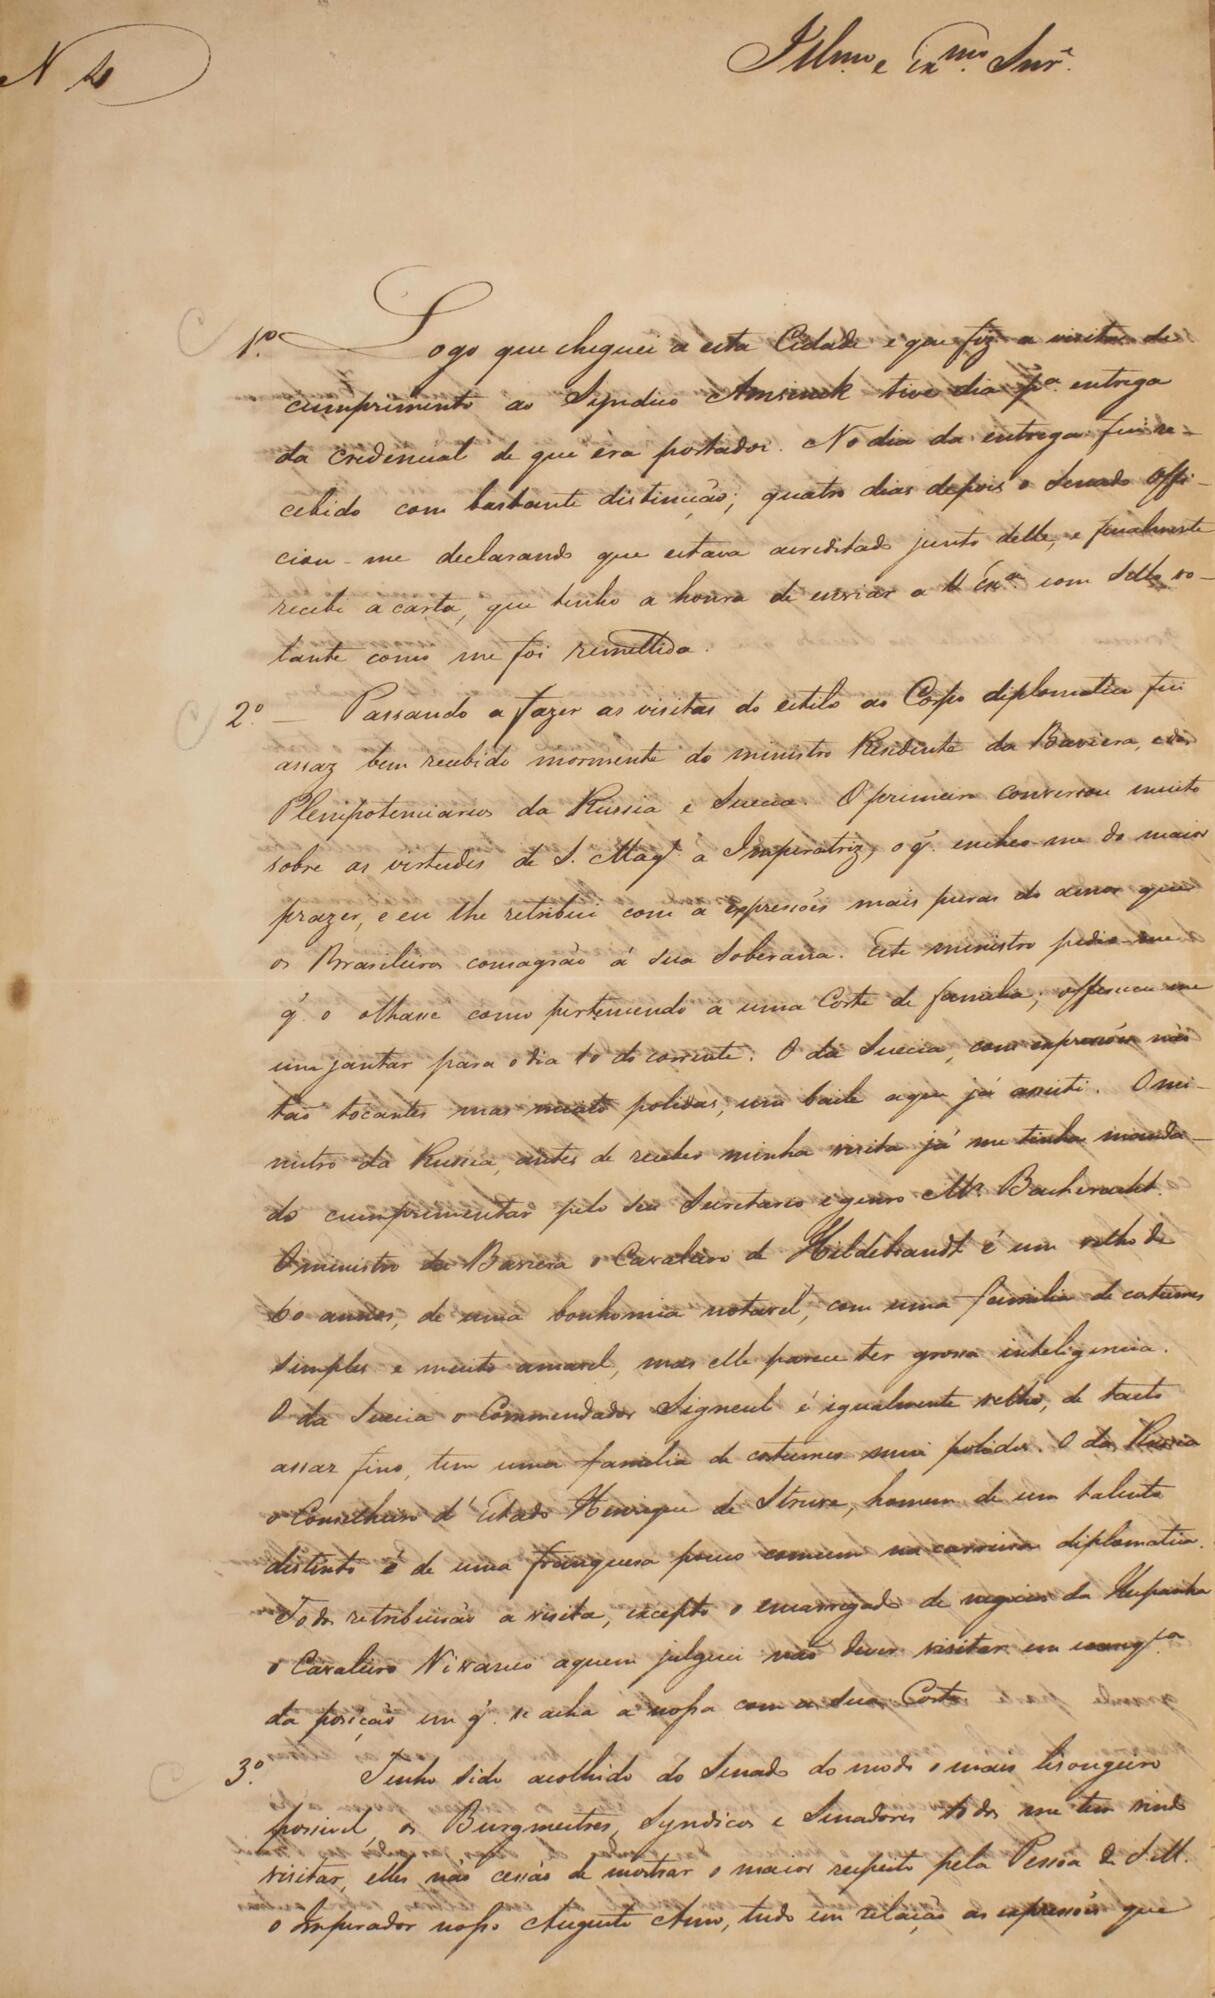 N 4
Illmo e Exmo Snr.
1º Logo que cheguei a esta Cidade e que fiz a visita de
cumprimento ao Syndico Amsinck tive dia pª entrega
da credencial de que éra portador. No dia da entrega fui re-
cebido com bastante distincção; quatro dias depois o Senado offi-
ciou-me declarando que estava acreditado junto delle, e finalmente
recebi a carta, que tenho a honra de enviar a V Exª com Sello vo-
lante como me foi remettida.
2º — Passando a fazer as visitas do estilo ao Corpo diplomatico fui
assaz bem recebido mormente do ministro Residente da Baviera, e dos
Plenipotenciarios da Russia e Suecia. O primeiro conversou muito
sobre as virtudes de S. Magᵉ a Imperatriz, o q̃. encheo-me do maior
prazer, e eu lhe retribui com a expressões mais puras do amor que
os Brasileiros consagrão á sua Soberana. Este ministro pedio-me
q̃. o olhasse como pertencendo a uma Corte de familia; offereceu me
um jantar para o dia 10 do corrente. O da Suecia, com expressões não
tão tocantes mas muito polidas, um baile a que já assisti. O mi-
nistro da Russia, antes de receber minha visita já me tinha manda-
do cumprimentar pelo seu Secretario e genro Mʳ Bacheracht.
O ministro da Baviera o Cavaleiro de Hildebrandt é um velho de
60 annos, de uma bonhomia notavel, com uma familia de costumes
simples e muito amavel, mas elle parece ter grossa inteligencia.
O da Suecia o Commendador Signeul é igualmente velho, de tacto
assaz fino, tem uma familia de costumes mui polidos. O da Russia
o Conselheiro d'Estado Henrique de Struve, homem de um talento
distinto e de uma franqueza pouco comum na carreira diplomatica.
Todos retribuirão a visita, excepto o encarregado de negocios da Hespanha
o Cavaleiro aquem julguei não dever visitar em
da posição em q̃. se acha a nossa com a sua Corte.
3º Tenho sido acolhido do Senado do modo o mais lisongeiro
possivel, os Burgmestres, Syndicos e Senadores todos me tem vindo
visitar, elles não cessão de mostrar o maior respeito pela Pessoa de S.M.
o Imperador nosso Augusto Amo, tudo em relação as expressões que